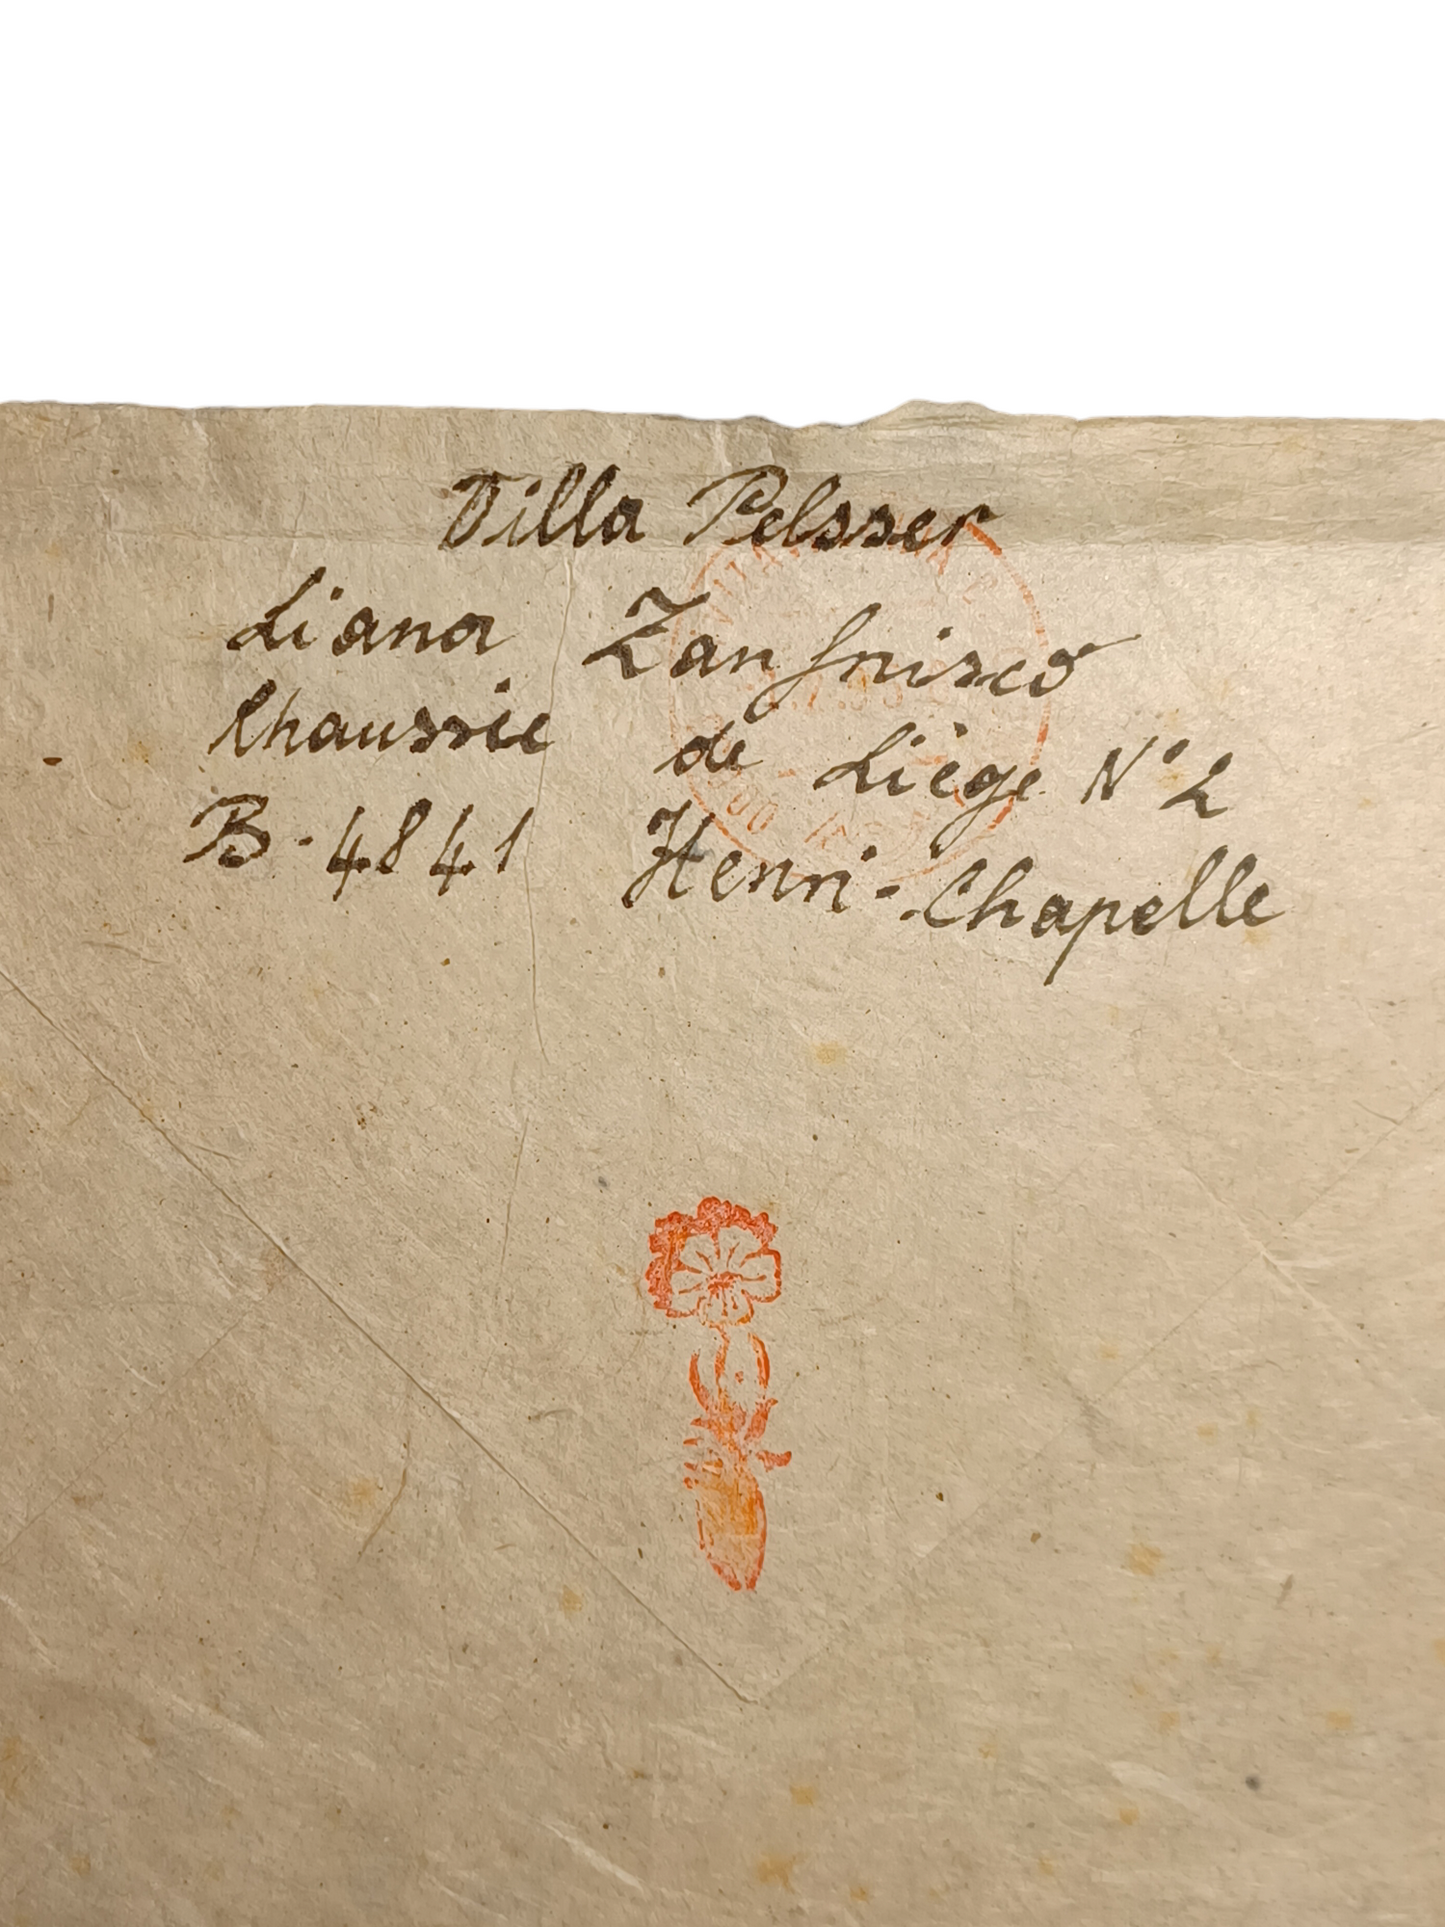 Villa Pelsser
Liana Zanfrisco
Chaussée de Liège N° 2
B-4841 Henri-Chapelle